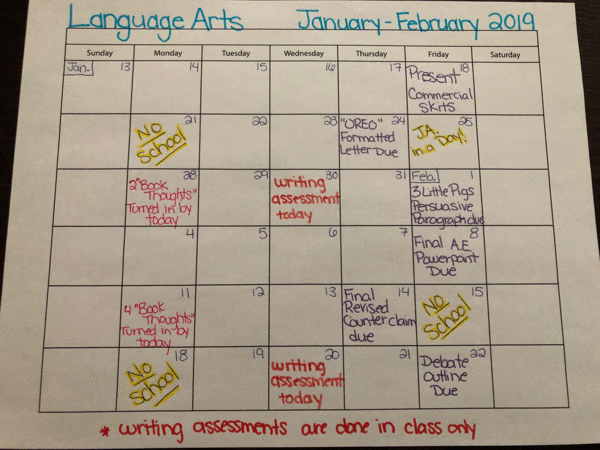 Language Arts January-February 2019
Sunday Monday Tuesday Wednesday Thursday Friday Saturday
Jan. 13 14 15 16 17 18
Present
Commercial
Skits
21 22 23 24 25
No
School
"OREO"
Formatted
Letter Due
J.A.
in a Day!
28 29 30 31 Feb. 1
2 "Book
Thoughts"
Turned in by
today
writing
assessment
today
3 Little Pigs
Persuasive
Paragraph due
4 5 6 7 8
Final A.E.
Powerpoint
Due
11 12 13 14 15
4 "Book
Thoughts"
Turned in by
today
Final
Revised
Counterclaim
due
No
School
18 19 20 21 22
No
School
writing
assessment
today
Debate
Outline
Due
* writing assessments are done in class only